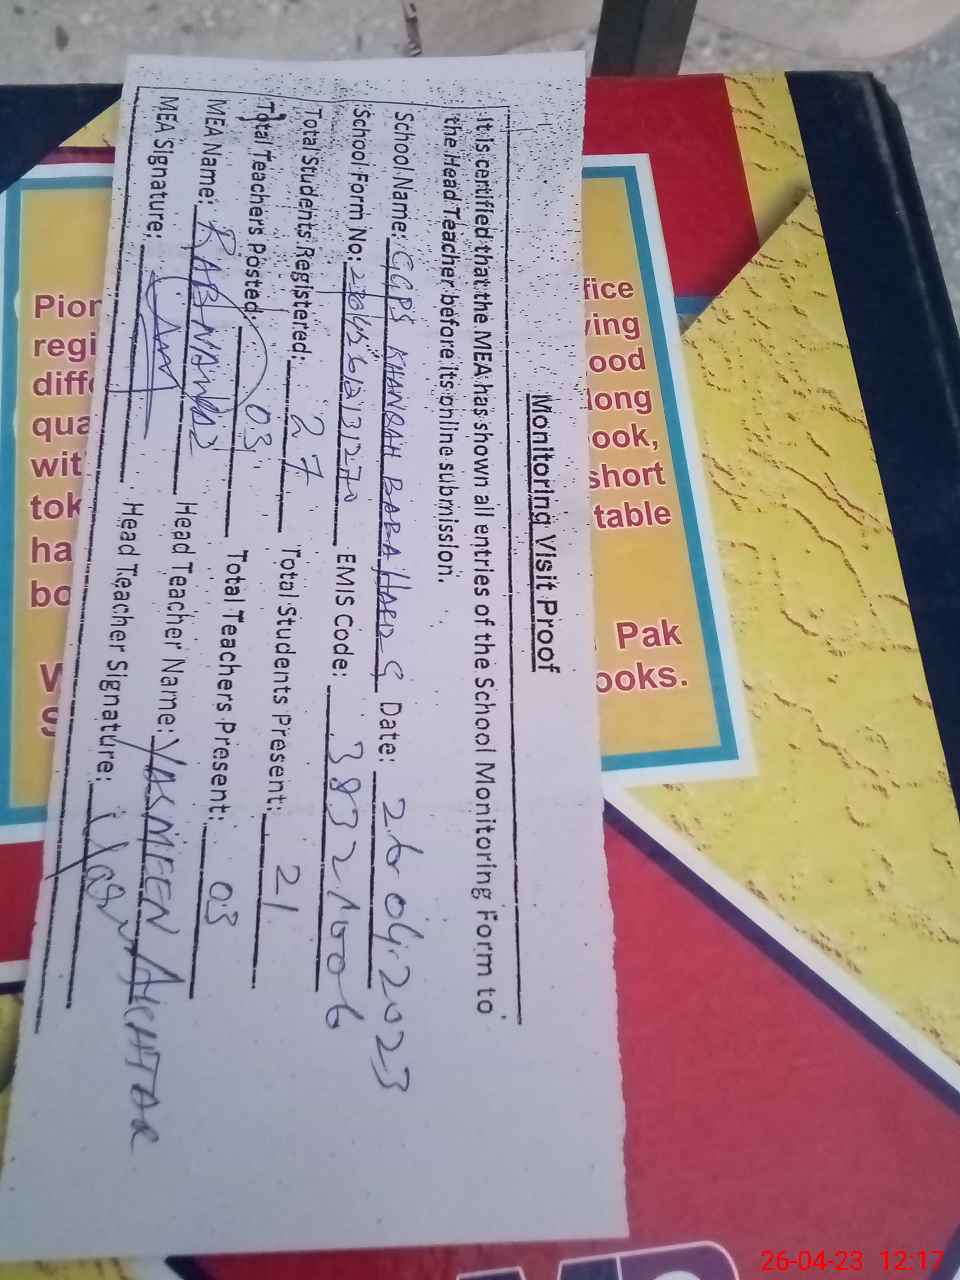 Monitoring Visit Proof
It is certified that the MEA has shown all entries of the School Monitoring Form to
the Head Teacher before its online submission.
School Name: GGPS KHANQAH BABA Date: 26 04.2023
School Form No: EMIS Code: 38321006
Total Students Registered: 27 Total Students Present: 21
Total Teachers Posted: 03 Total Teachers Present: 03
MEA Name: RAB NAWAZ Head Teacher Name: YASMEEN AKHTAR
MEA Signature: Head Teacher Signature:
fice
ving
ood
long
ook,
short
table
Pak
ooks.
Pion
regi
diff
qua
wit
tok
ha
bo
W
S
26-04-23 12:17